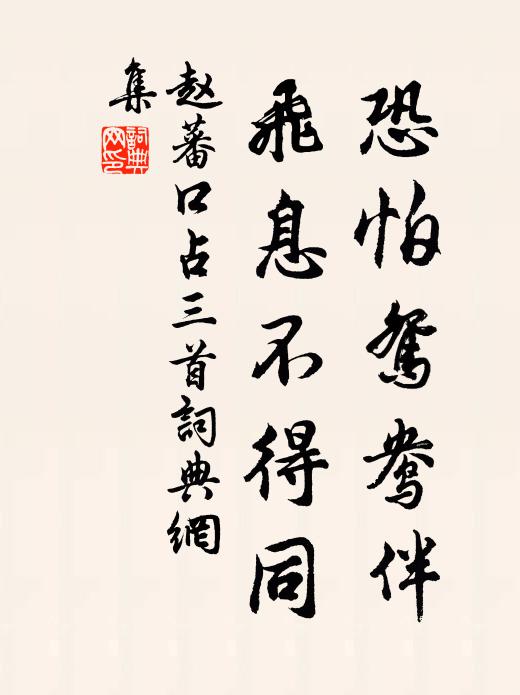 恐怕鴛鴦伴
飛息不得同
赵蕃口占三首詞典網
集
詞典
网印